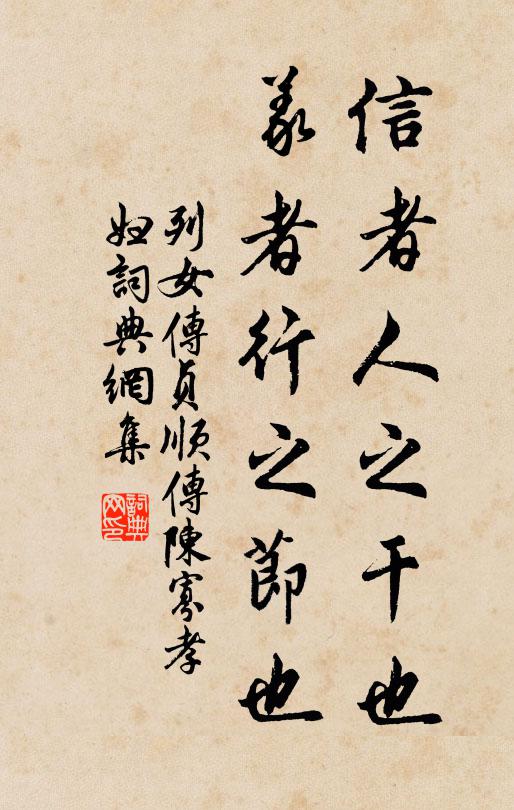 信者人之干也
義者行之節也
列女傳貞順傳陳寡孝
妇詞典網集
詞典
网印